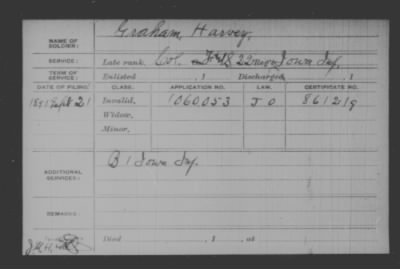 Graham, Harvey,
NAME OF SOLDIER:
SERVICE: Late rank, Col. F&S 22 Iowa Inf.
TERM OF SERVICE: Enlisted , 1 Discharged , 1
DATE OF FILING. CLASS. APPLICATION NO. LAW. CERTIFICATE NO.
1891 Sept 21 Invalid, 1060.053 86121
Widow,
Minor,
ADDITIONAL SERVICES: B 1 Iowa Inf.
REMARKS:
Died , 1 , at